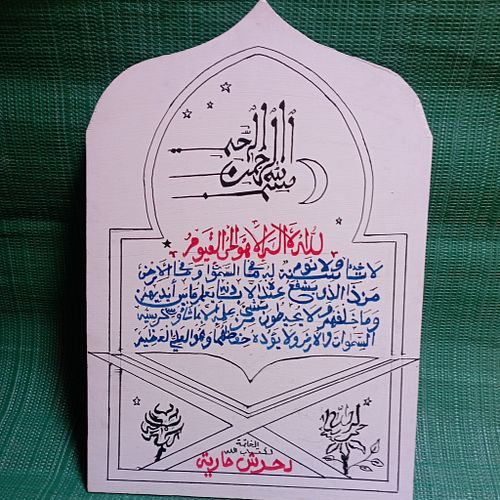 بسم الله الرحمن الرحيم
الله لا اله الا هو الحي القيوم
لا تأخذه سنة ولا نوم له ما في السموات وما في الارض
من ذا الذي يشفع عنده الا باذنه يعلم ما بين ايديهم
وما خلفهم ولا يحيطون بشيء من علمه الا بما شاء وسع كرسيه
السموات والارض ولا يؤده حفظهما وهو العلي العظيم
الله
لحرش مارية